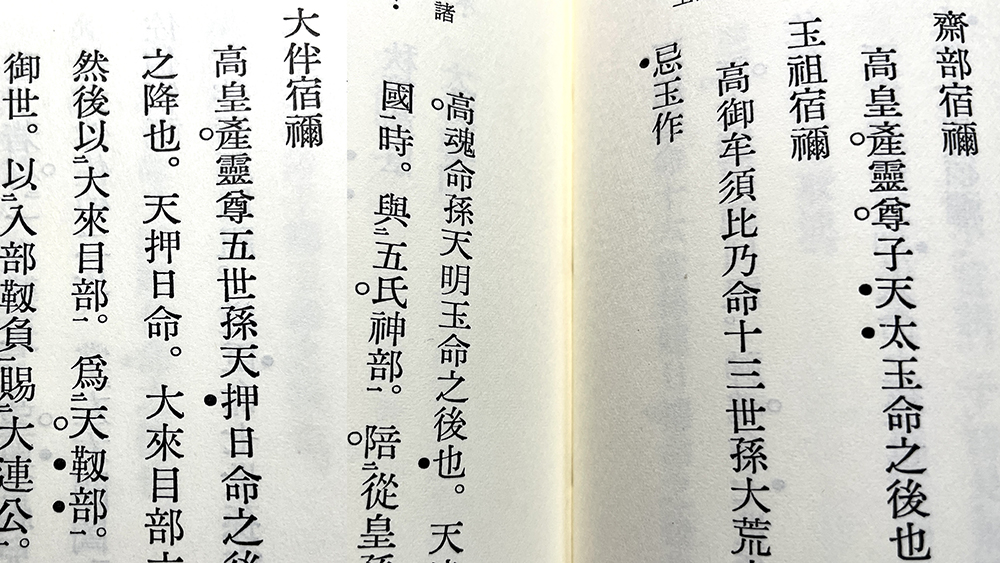 齋部宿禰
高皇產靈尊子天太玉命之後也
玉祖宿禰
高御牟須比乃命十三世孫大荒
忌玉作
諸
高魂命孫天明玉命之後也。天
國一時。與二五氏神部一。陪二從皇孫
大伴宿禰
高皇產靈尊五世孫天押日命之後
之降也。天押日命。大來目部
然後以二大來目部一。爲二天靱部一。
御世。以二入部靱負一賜二大連公一。